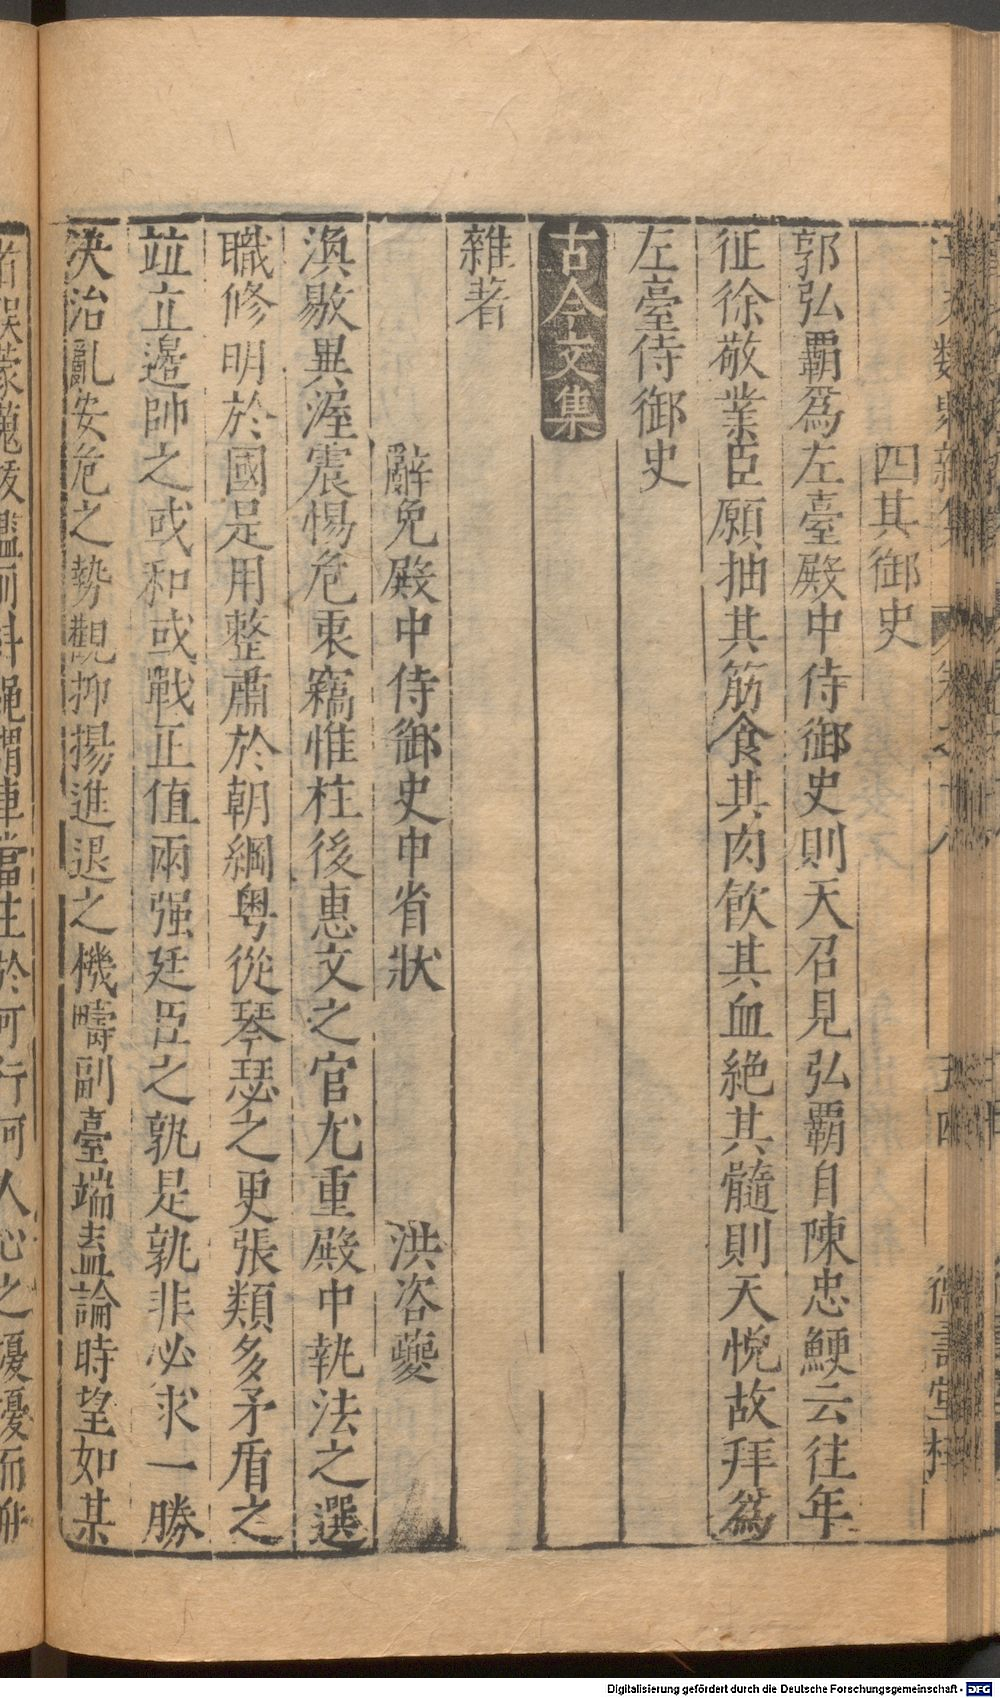 四其御史
郭弘霸爲左臺殿中侍御史則天召見弘霸自陳忠鯁云往年
征徐敬業臣願抽其筋食其肉飲其血絶其髓則天悅故拜爲
左臺侍御史
古今文集
雜著
辭免殿中侍御史申省狀 洪咨夔
渙敭異渥震惕危衷竊惟柱後惠文之官尤重殿中執法之選
職修明於國是用整肅於朝綱粤從琴瑟之更張類多矛盾之
竝立邊帥之或和或戰正值兩强廷臣之孰是孰非必求一勝
决治亂安危之勢觀抑揚進退之機疇副臺端盍論時望如某
於何行何人心之擾擾而
Digitalisierung gefördert durch die Deutsche Forschungsgemeinschaft - DFG